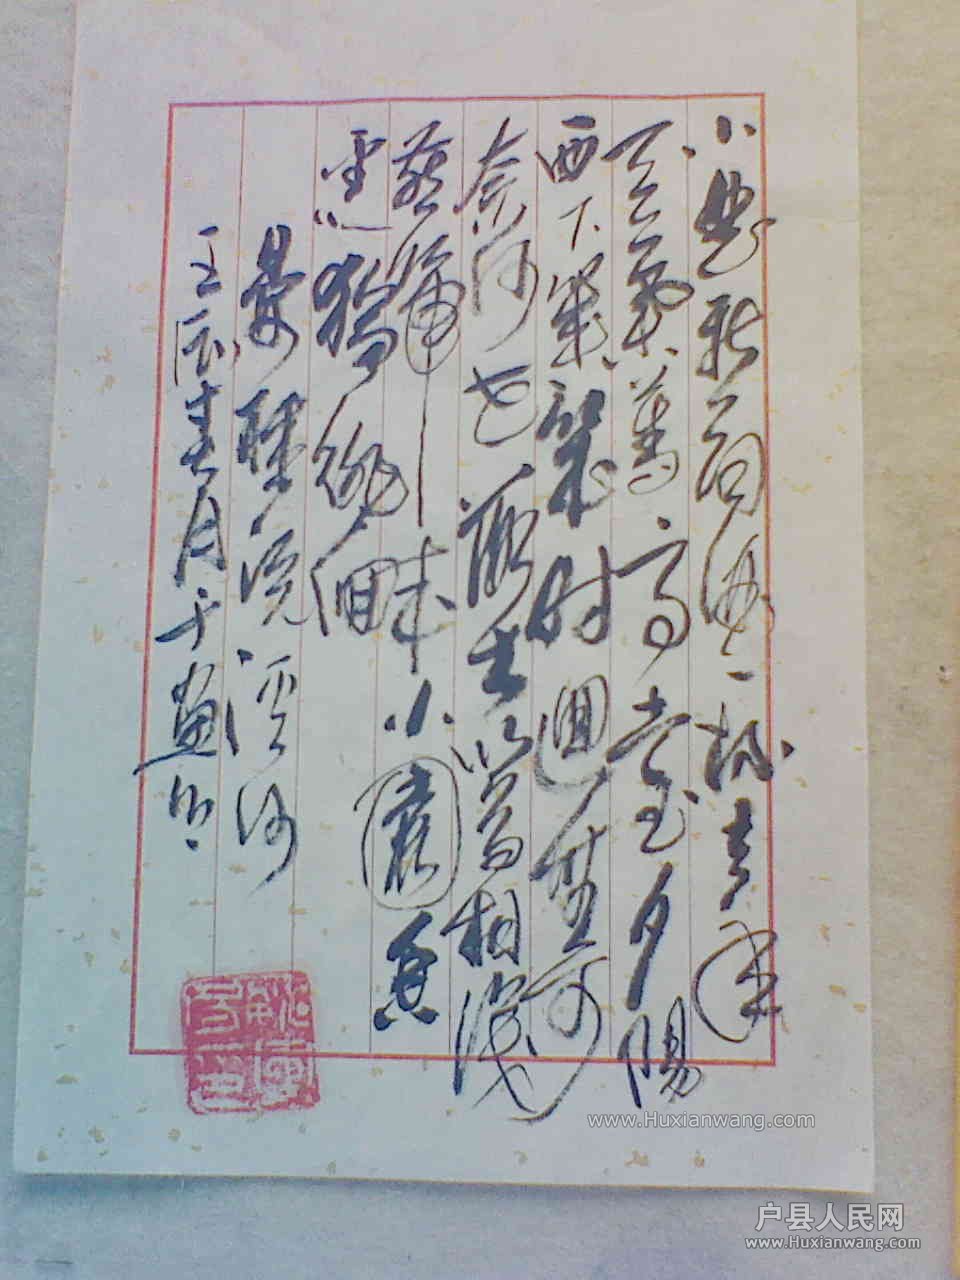 小曲新詞酒一杯去年
天氣舊亭臺夕陽
西下幾時迴無可
奈何花落去似曾相識
燕歸來小園香
徑獨徘徊
晏殊浣溪沙
壬辰春月于畫
www.Huxianwang.com
户县人民网
www.Huxianwang.com